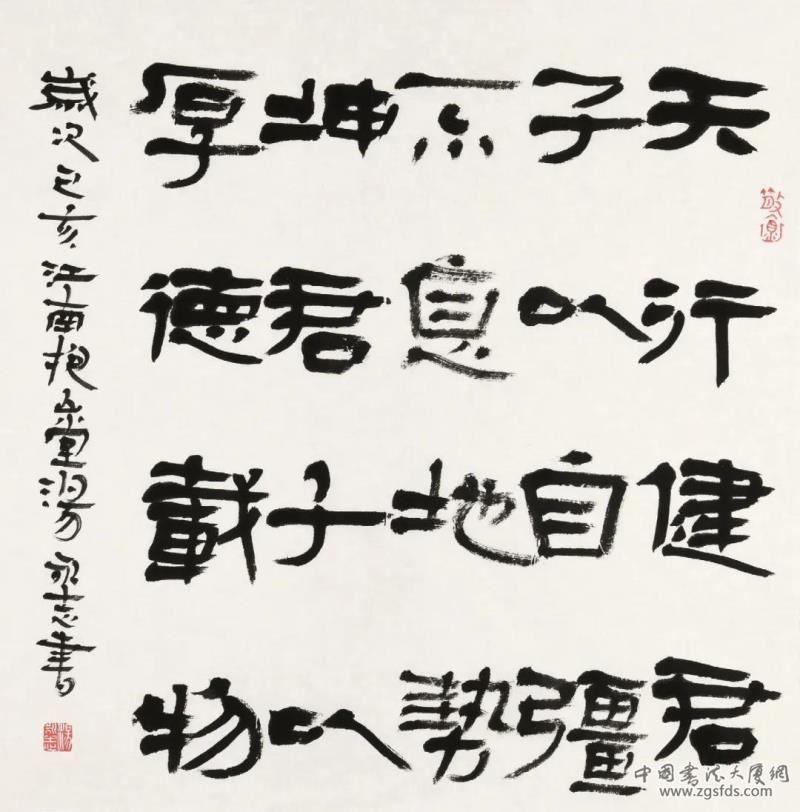 天行健君
子以自彊
不息地勢
坤君子以
厚德載物
歲次己亥江南抱童湯永志書
中国书法大厦网
www.zgsfds.com